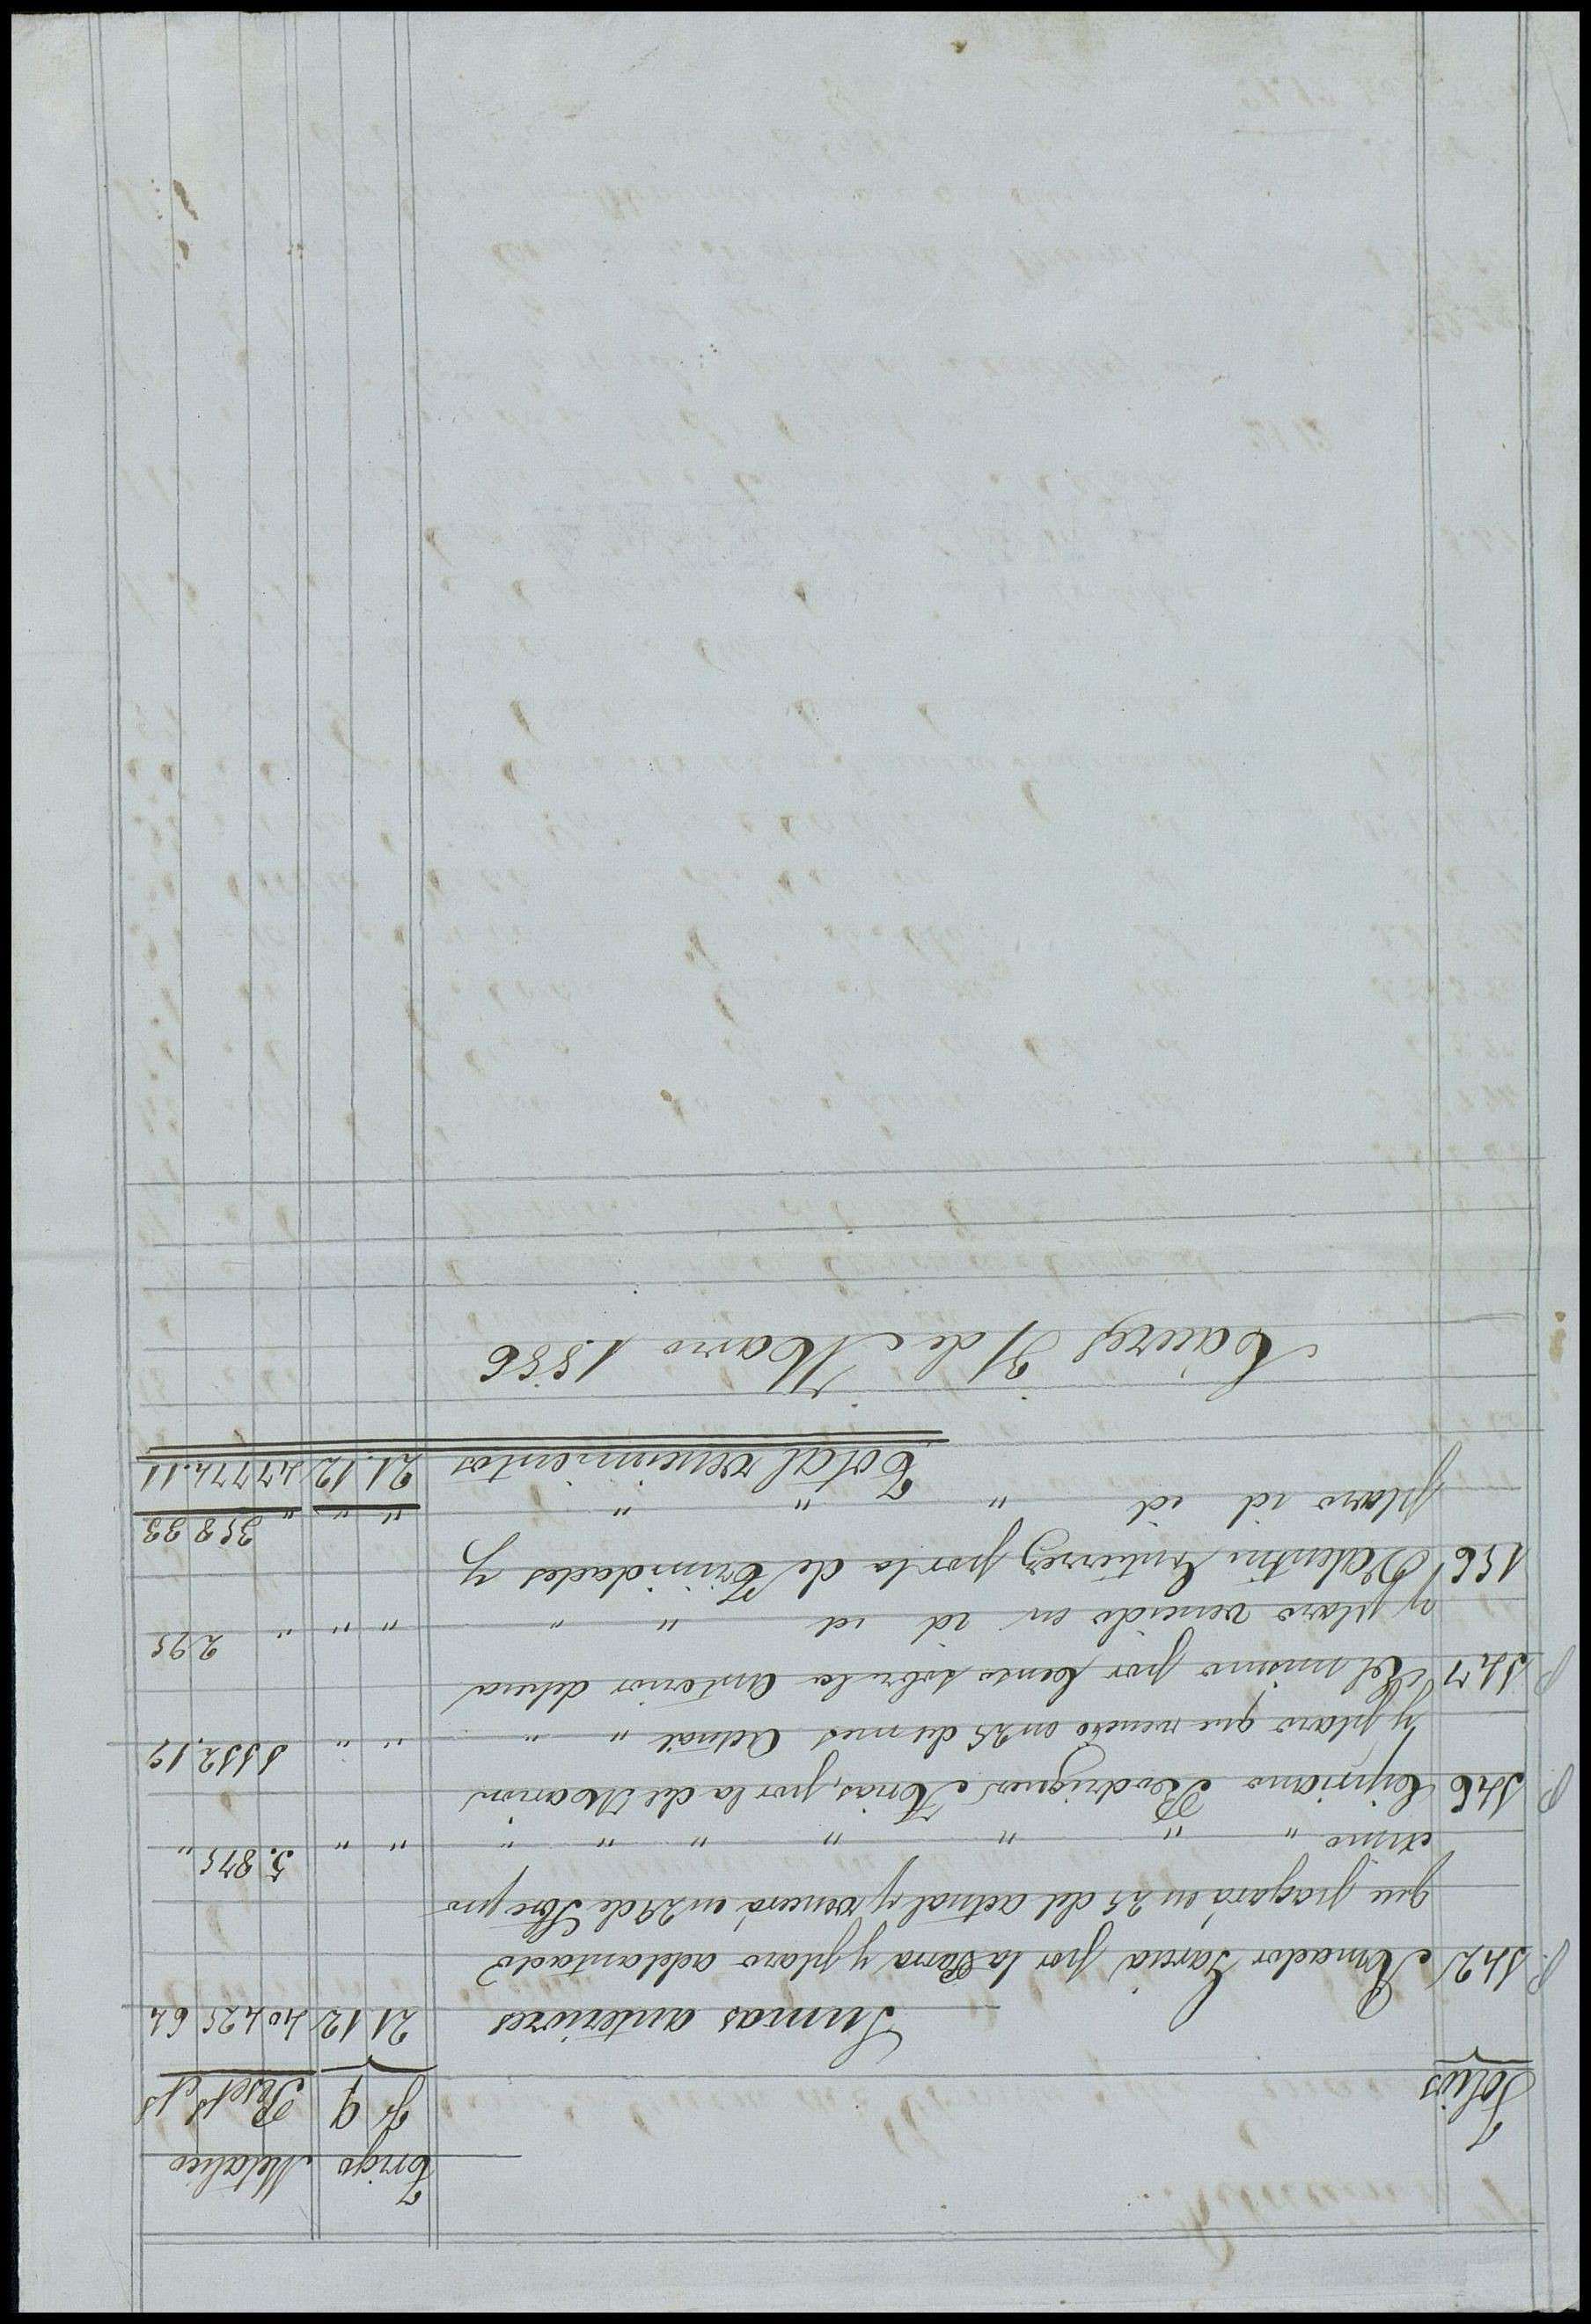 Folios
Trigo Metalico
F. q Peset.s c.s
Sumas anteriores 21 12 40425 64
P. 142 Amador Garcia por la Parra y plazo adelantado
que pagará en 25 del actual y vencerá en 29 de Sbre pro
ximo " " " " " " " " 5.875 "
P. 146 Cipriano Rodriguez Arias, por la de Marin
y plazo que venció en 25 de mes actual " " " " 1112.19
P. 147 El mismo por censo sobre la anterior dehesa
y plazo vencido en id id " " " " " 2 95
156 Valentin Gutierrez por la de Trinidades y
plazo id id " " " " " " 358 33
Total vencimientos 21.12 47774.11
Cáceres 31 de Marzo 1886